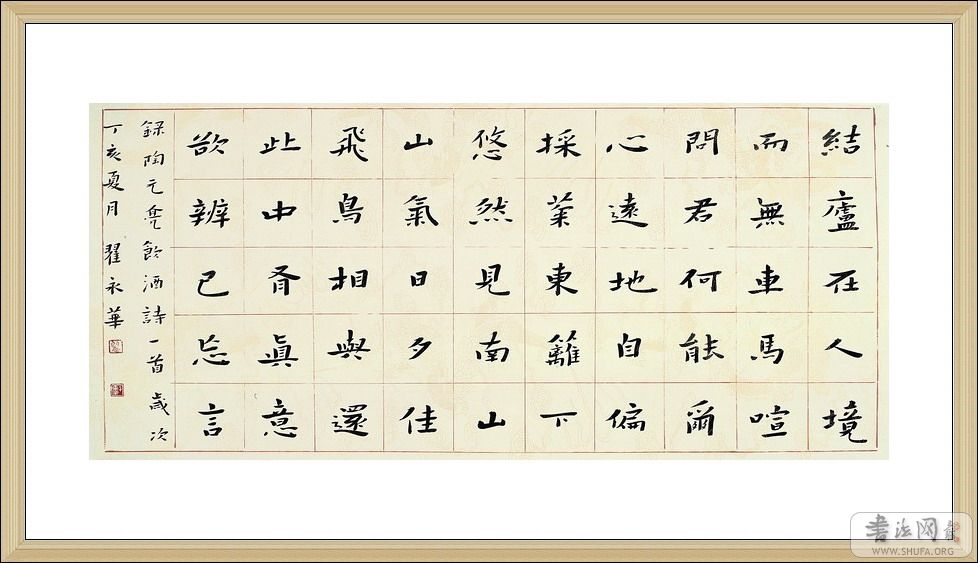 結廬在人境
而無車馬喧
問君何能爾
心遠地自偏
採菊東籬下
悠然見南山
山氣日夕佳
飛鳥相與還
此中有眞意
欲辨已忘言
録陶元亮飲酒詩一首歲次
丁亥夏月翟永華
書法网
WWW.SHUFA.ORG